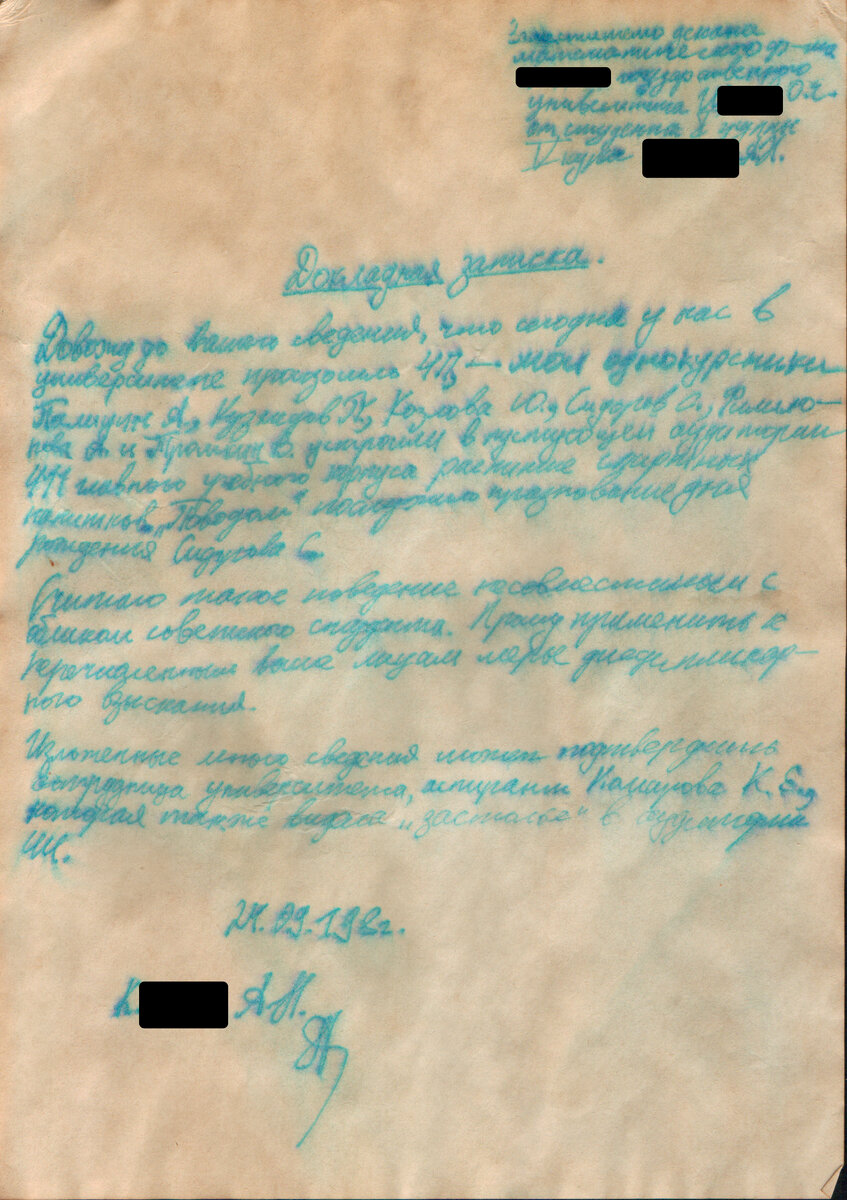 Заместителю декана
математического ф-та
государственного
университета Ц О.Я.
от студента 2 группы
IV курса А.Н.
Докладная записка.
Довожу до вашего сведения, что сегодня у нас в
университете произошло ЧП — мои однокурсники
А., Козлова Ю., С.,
А. и В. устроили в пустующей аудитории
главного учебного корпуса распитие спиртных
напитков. „Поводом“ послужило празнование дня
рождения С.
Считаю такое поведение несовместимым с
обликом советского студента. Прошу применить к
перечисленным выше лицам меры дисциплинар-
ного взыскания.
Изложенные мною сведения может подтвердить
сотрудница университета, аспирант Комарова К. Е.,
которая также видела „застолье“ в аудитории
К. А.Н.